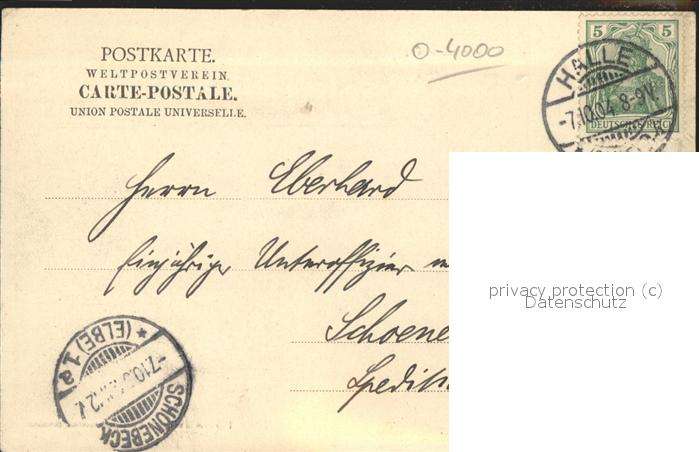 POSTKARTE.
WELTPOSTVEREIN
CARTE-POSTALE.
UNION POSTALE UNIVERSELLE.
0-4000
5 5
DEUTSCHES REICH
HALLE
-7.10.04 8-9V.
Herrn Eberhard
Einjährige Unteroffizier
Schoene
Spedit
privacy protection (c)
Datenschutz
SCHÖNEBECK
* (ELBE) 1a
-7.10.